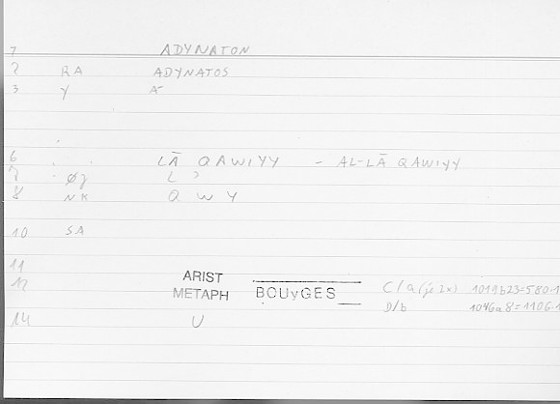 1 ADYNATON
2 RA ADYNATOS
3 Y A-
6 LĀ QAWIYY - AL-LĀ QAWIYY
7 Øj L ʾ
8 NK Q W Y
10 SA
11
12 ARIST METAPH BOUyGES C/a ( 2x) 1019b23=580.1
9/b 1046a8=1106.1
14 U